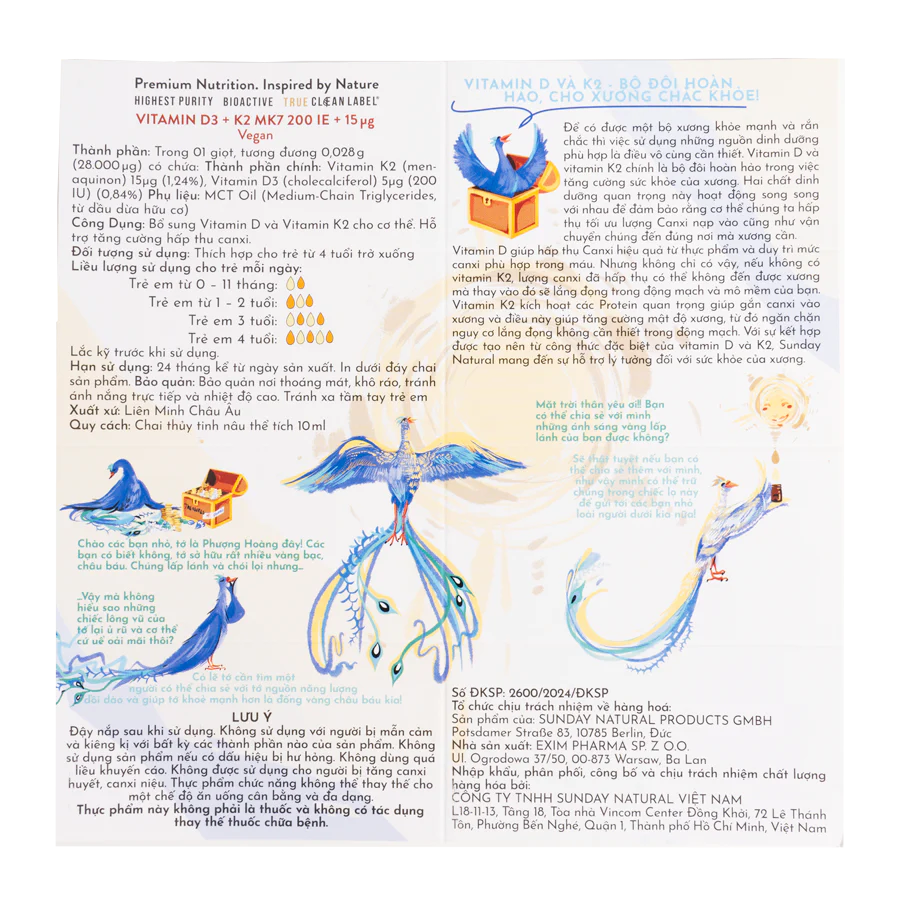 Premium Nutrition. Inspired by Nature
HIGHEST PURITY BIOACTIVE TRUE CLEAN LABEL®
VITAMIN D3 + K2 MK7 200 IE + 15 µg
Vegan
Thành phần: Trong 01 giọt, tương đương 0,028g
(28.000µg) có chứa: Thành phần chính: Vitamin K2 (men-
aquinon) 15µg (1,24%), Vitamin D3 (cholecalciferol) 5µg (200
IU) (0,84%) Phụ liệu: MCT Oil (Medium-Chain Triglycerides,
từ dầu dừa hữu cơ)
Công Dụng: Bổ sung Vitamin D và Vitamin K2 cho cơ thể. Hỗ
trợ tăng cường hấp thu canxi.
Đối tượng sử dụng: Thích hợp cho trẻ từ 4 tuổi trở xuống
Liều lượng sử dụng cho trẻ mỗi ngày:
Trẻ em từ 0 – 11 tháng:
Trẻ em từ 1 – 2 tuổi:
Trẻ em 3 tuổi:
Trẻ em 4 tuổi:
Lắc kỹ trước khi sử dụng.
Hạn sử dụng: 24 tháng kể từ ngày sản xuất. In dưới đáy chai
sản phẩm. Bảo quản: Bảo quản nơi thoáng mát, khô ráo, tránh
ánh nắng trực tiếp và nhiệt độ cao. Tránh xa tầm tay trẻ em
Xuất xứ: Liên Minh Châu Âu
Quy cách: Chai thủy tinh nâu thể tích 10ml
Chào các bạn nhỏ, tớ là Phượng Hoàng đây! Các
bạn có biết không, tớ sở hữu rất nhiều vàng bạc,
châu báu. Chúng lấp lánh và chói lọi nhưng...
...Vậy mà không
hiểu sao những
chiếc lông vũ của
tớ lại ủ rũ và cơ thể
cứ uể oải mãi thôi?
Có lẽ tớ cần tìm một
người có thể chia sẻ với tớ nguồn năng lượng
dồi dào và giúp tớ khoẻ mạnh hơn là đống vàng châu báu kia!
LƯU Ý
Đậy nắp sau khi sử dụng. Không sử dụng với người bị mẫn cảm
và kiêng kị với bất kỳ các thành phần nào của sản phẩm. Không
sử dụng sản phẩm nếu có dấu hiệu bị hư hỏng. Không dùng quá
liều khuyến cáo. Không được sử dụng cho người bị tăng canxi
huyết, canxi niệu. Thực phẩm chức năng không thể thay thế cho
một chế độ ăn uống cân bằng và đa dạng.
Thực phẩm này không phải là thuốc và không có tác dụng
thay thế thuốc chữa bệnh.
VITAMIN D VÀ K2 - BỘ ĐÔI HOÀN
HẢO, CHO XƯƠNG CHẮC KHỎE!
Để có được một bộ xương khỏe mạnh và rắn
chắc thì việc sử dụng những nguồn dinh dưỡng
phù hợp là điều vô cùng cần thiết. Vitamin D và
vitamin K2 chính là bộ đôi hoàn hảo trong việc
tăng cường sức khỏe của xương. Hai chất dinh
dưỡng quan trọng này hoạt động song song
với nhau để đảm bảo rằng cơ thể chúng ta hấp
thụ tối ưu lượng Canxi nạp vào cũng như vận
chuyển chúng đến đúng nơi mà xương cần.
Vitamin D giúp hấp thu Canxi hiệu quả từ thực phẩm và duy trì mức
canxi phù hợp trong máu. Nhưng không chỉ có vậy, nếu không có
vitamin K2, lượng canxi đã hấp thu có thể không đến được xương
mà thay vào đó sẽ lắng đọng trong động mạch và mô mềm của bạn.
Vitamin K2 kích hoạt các Protein quan trọng giúp gắn canxi vào
xương và điều này giúp tăng cường mật độ xương, từ đó ngăn chặn
nguy cơ lắng đọng không cần thiết trong động mạch. Với sự kết hợp
được tạo nên từ công thức đặc biệt của vitamin D và K2, Sunday
Natural mang đến sự hỗ trợ lý tưởng đối với sức khỏe của xương.
Mặt trời thân yêu ơi!! Bạn
có thể chia sẻ với mình
những ánh sáng vàng lấp
lánh của bạn được không?
Sẽ thật tuyệt nếu bạn có
thể chia sẻ thêm với mình,
như vậy mình có thể trữ
chúng trong chiếc lọ này
để gửi tới các bạn nhỏ
loài người dưới kia nữa!
Số ĐKSP: 2600/2024/ĐKSP
Tổ chức chịu trách nhiệm về hàng hoá:
Sản phẩm của: SUNDAY NATURAL PRODUCTS GMBH
Potsdamer Straße 83, 10785 Berlin, Đức
Nhà sản xuất: EXIM PHARMA SP. Z O.O.
Ul. Ogrodowa 37/50, 00-873 Warsaw, Ba Lan
Nhập khẩu, phân phối, công bố và chịu trách nhiệm chất lượng
hàng hóa bởi:
CÔNG TY TNHH SUNDAY NATURAL VIỆT NAM
L18-11-13, Tầng 18, Tòa nhà Vincom Center Đồng Khởi, 72 Lê Thánh
Tôn, Phường Bến Nghé, Quận 1, Thành phố Hồ Chí Minh, Việt Nam